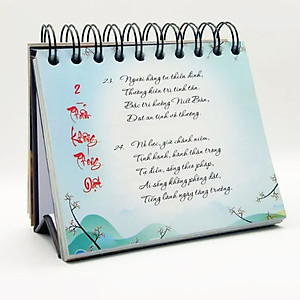 2
Phẩm
Không
Phóng
Dật
23. Người hằng tu thiền định,
Thường kiên trì tinh tấn.
Bậc trí hưởng Niết Bàn,
Đạt an tịnh vô thượng.
24. Nỗ lực, giữ chánh niệm,
Tịnh hạnh, hành thận trọng
Tự điều, sống theo pháp,
Ai sống không phóng dật,
Tiếng lành ngày tăng trưởng.